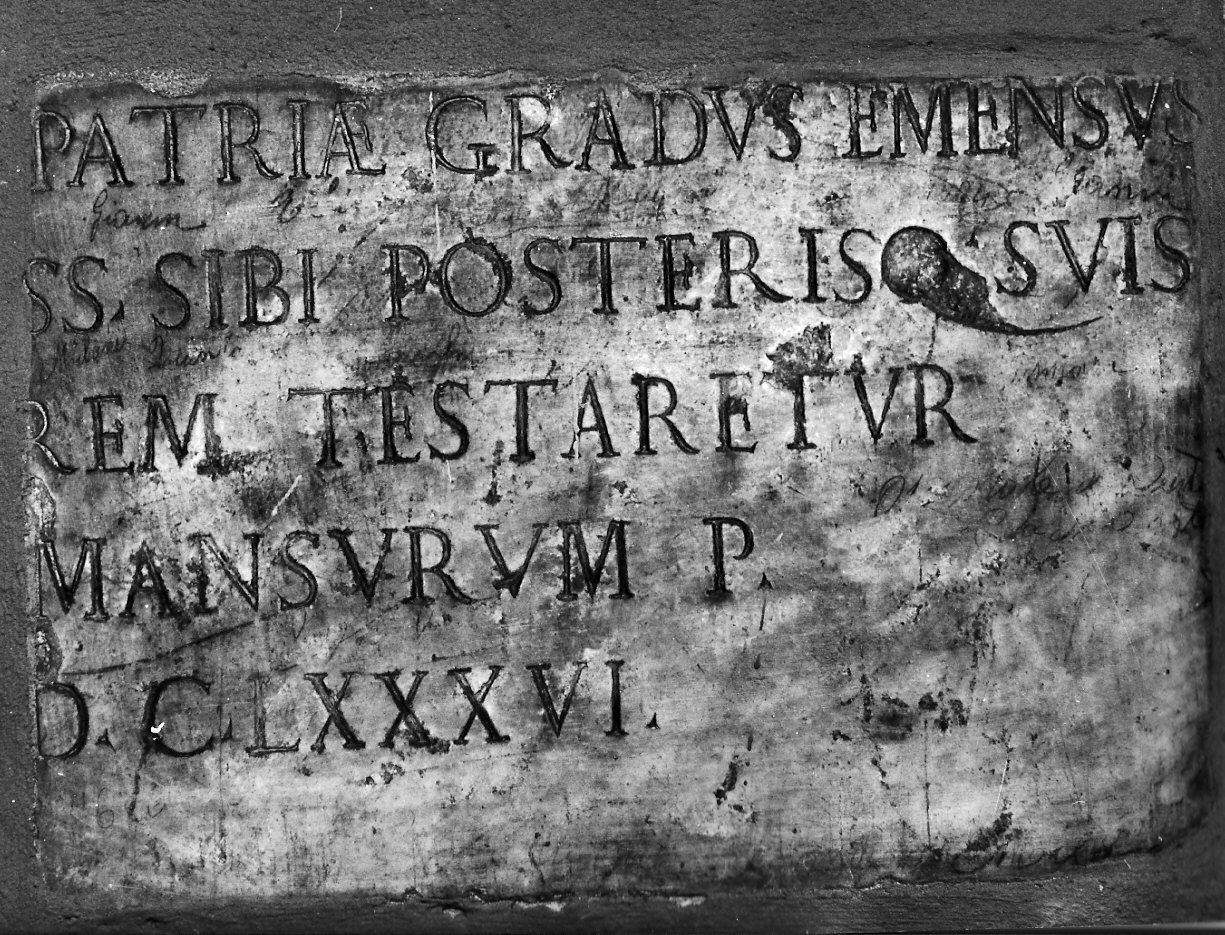 PATRIÆ GRADVS EMENSVS
SS. SIBI POSTERISQ SVIS
REM TESTARETVR
MANSVRVM P.
D. C. LXXXVI.